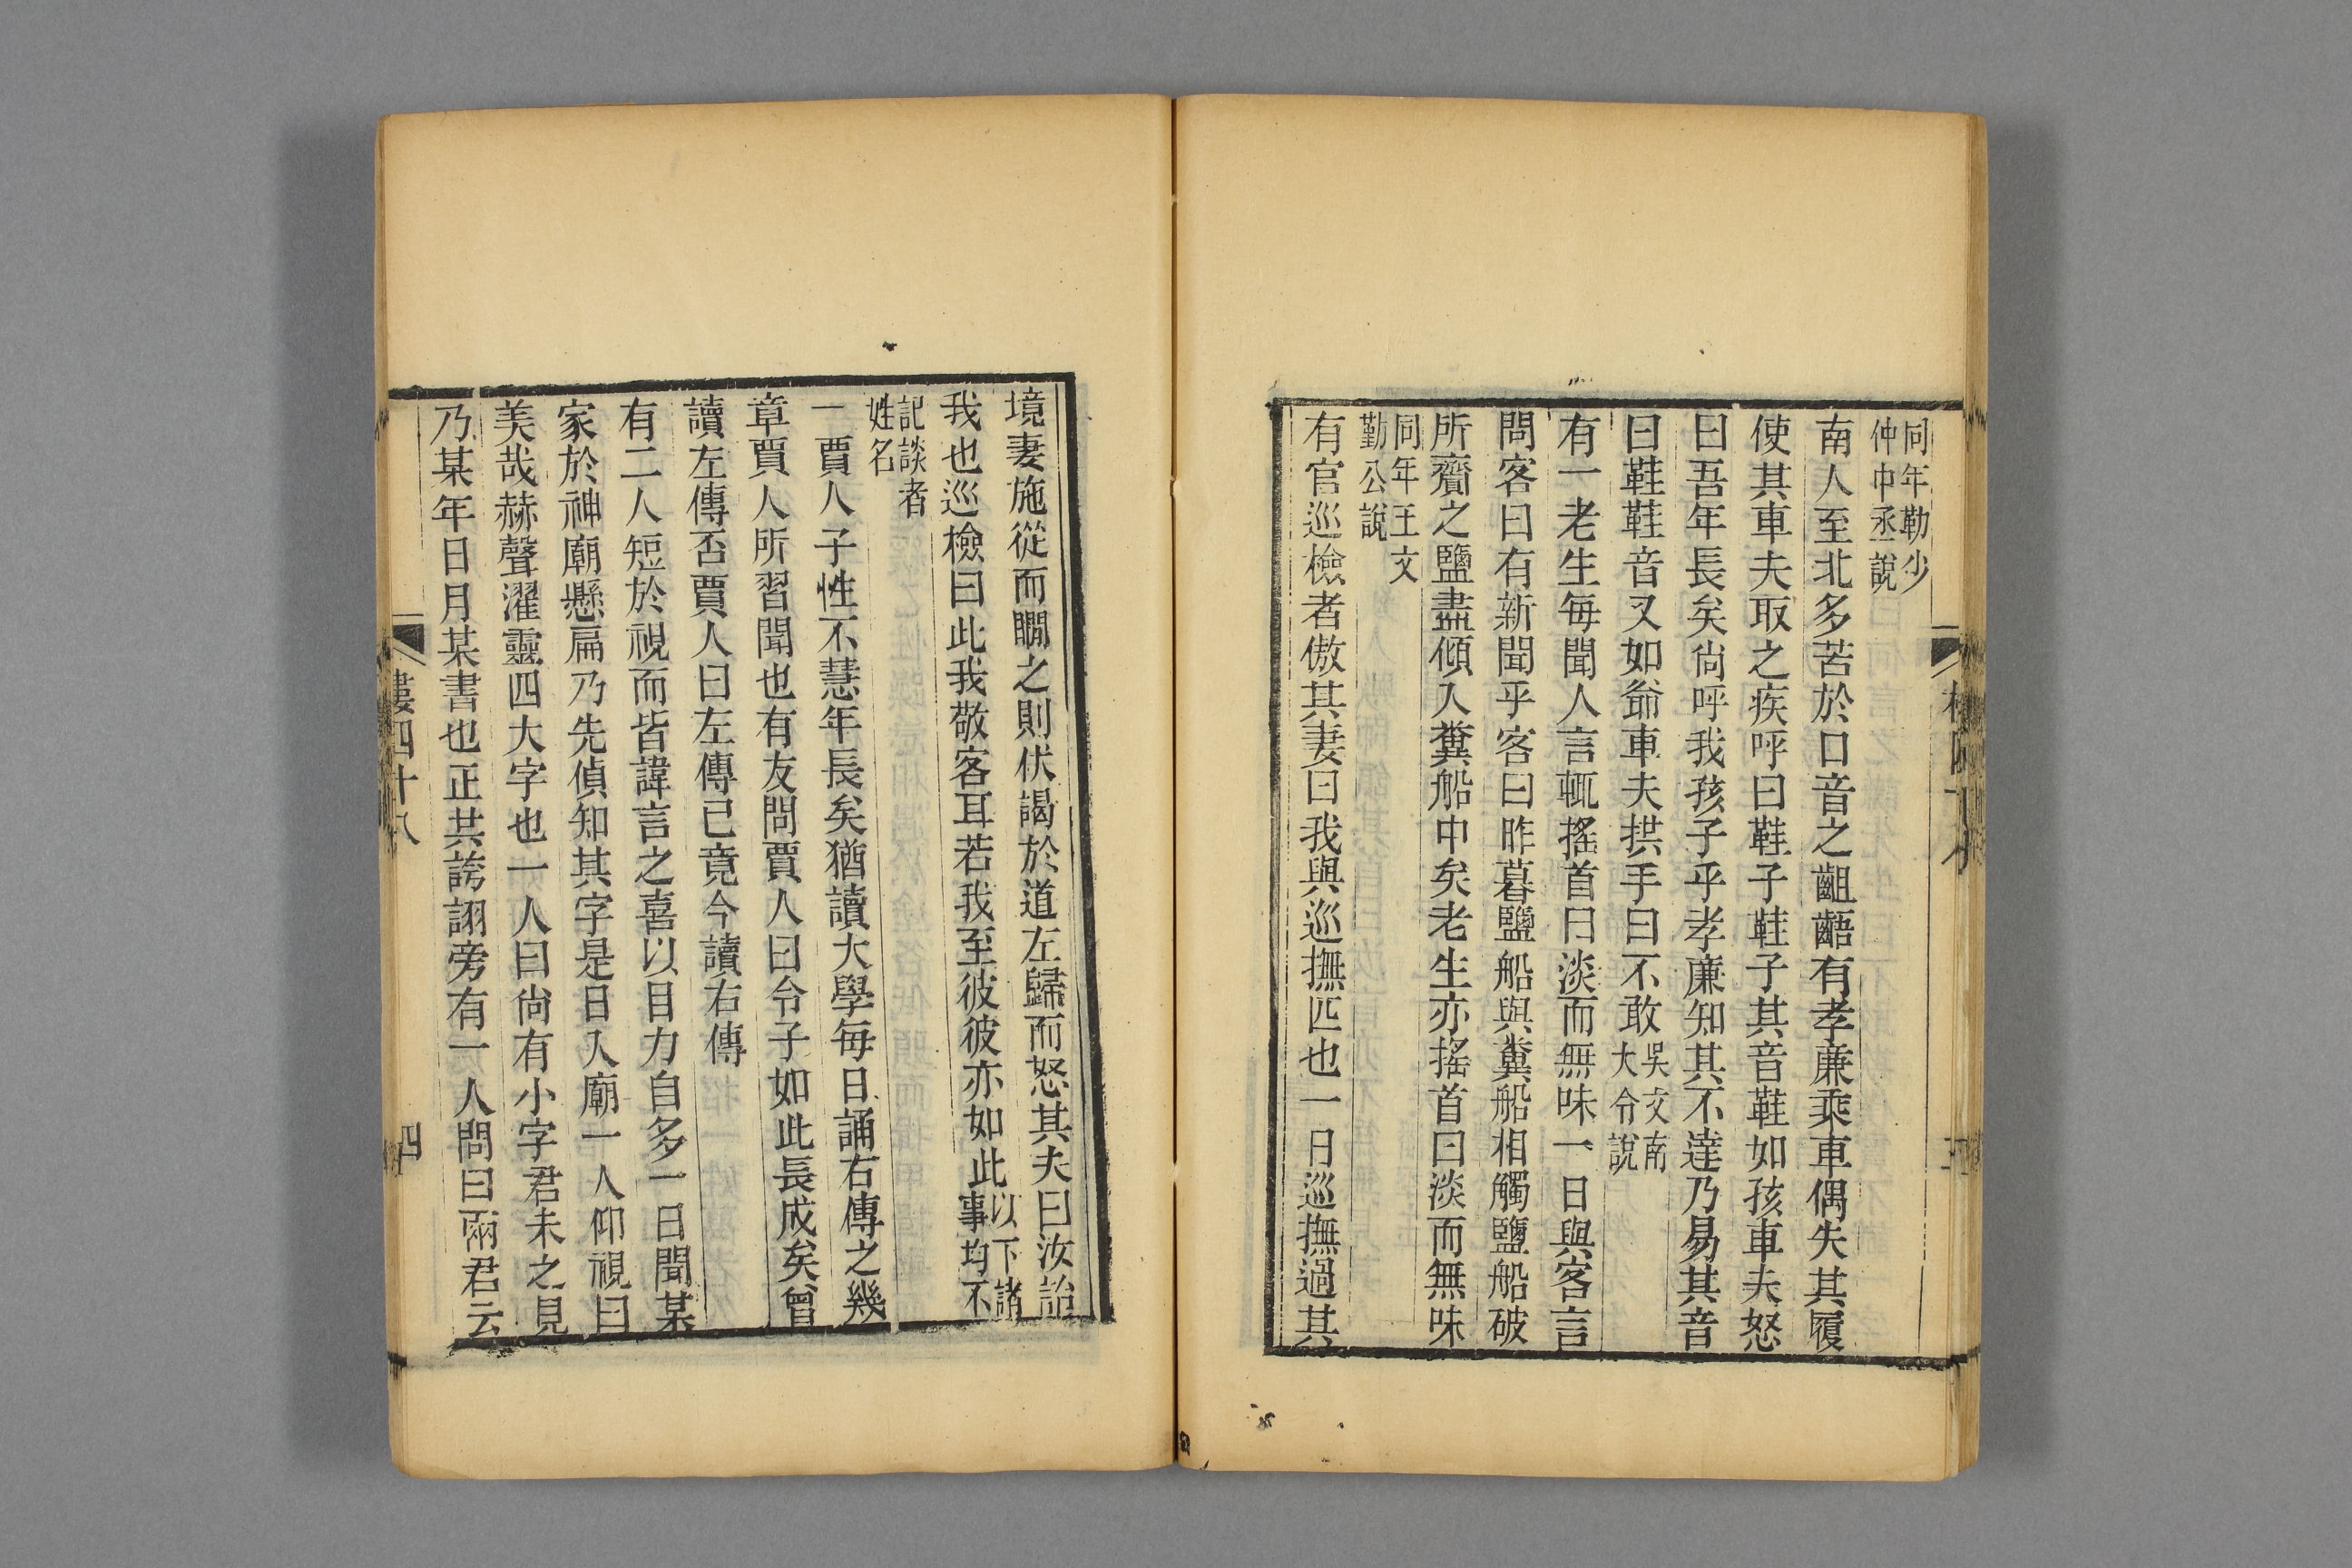 同年勒少
仲中丞說
南人至北多苦於口音之齟齬有孝廉乘車偶失其履
使其車夫取之疾呼曰鞋子鞋子其音鞋如孩車夫怒
曰吾年長矣尙呼我孩子乎孝廉知其不達乃易其音
曰鞋鞋音又如爺車夫拱手曰不敢
吳文南
大令說
有一老生每聞人言輒搖首曰淡而無味一日與客言
問客曰有新聞乎客曰昨暮鹽船與糞船相觸鹽船破
所齎之鹽盡傾入糞船中矣老生亦搖首曰淡而無味
同年王文
勤公說
有官巡檢者傲其妻曰我與巡撫匹也一日巡撫過其
境妻施從而瞷之則伏謁於道左歸而怒其夫曰汝詒
我也巡檢曰此我敬客耳若我至彼彼亦如此
以下諸
事均不
記談者
姓名
一賈人子性不慧年長矣猶讀大學每日誦右傳之幾
章賈人所習聞也有友問賈人曰令子如此長成矣曾
讀左傳否賈人曰左傳已竟今讀右傳
有二人短於視而皆諱言之喜以目力自多一日聞某
家於神廟懸扁乃先偵知其字是日入廟一人仰視曰
美哉赫聲濯靈四大字也一人曰尙有小字君未之見
乃某年日月某書也正其誇詡旁有一人問曰兩君云
婁四十八
四